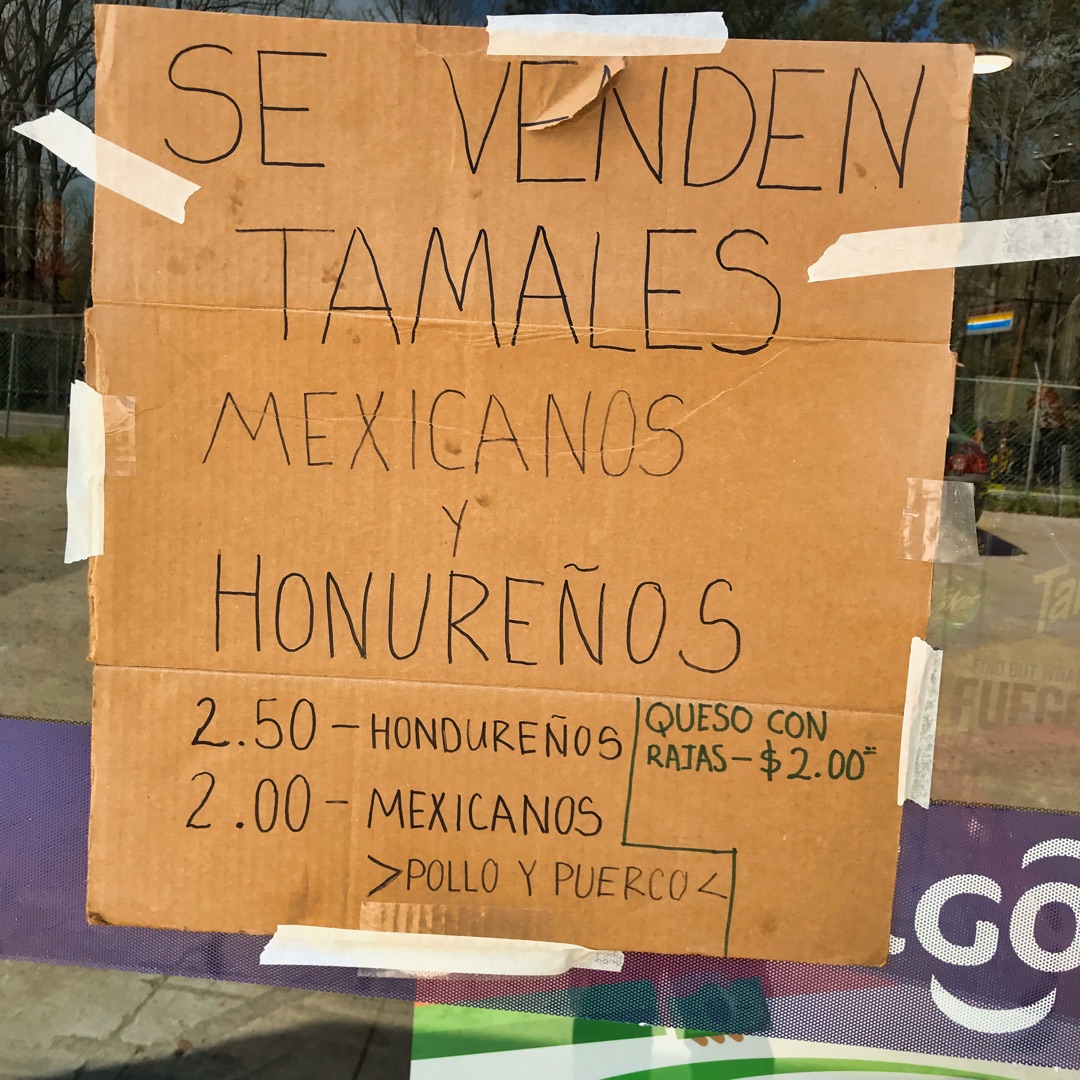 SE VENDEN
TAMALES
MEXICANOS
Y
HONUREÑOS
2.50 - HONDUREÑOS
2.00 - MEXICANOS
>POLLO Y PUERCO<
QUESO CON
RAJAS - $2.00=
FIND OUT
FUEGO
GO